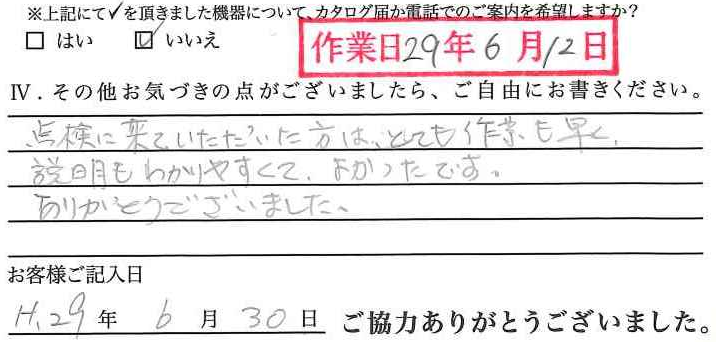 ※上記にて✓を頂きました機器について、カタログ届か電話でのご案内を希望しますか?
□ はい ☑ いいえ
作業日29年6月12日
Ⅳ．その他お気づきの点がございましたら、ご自由にお書きください。
点検に来ていただいた方は、とても作業も早く、
説明もわかりやすくて、よかったです。
ありがとうございました。
お客様ご記入日
H.29年 6月30日 ご協力ありがとうございました。